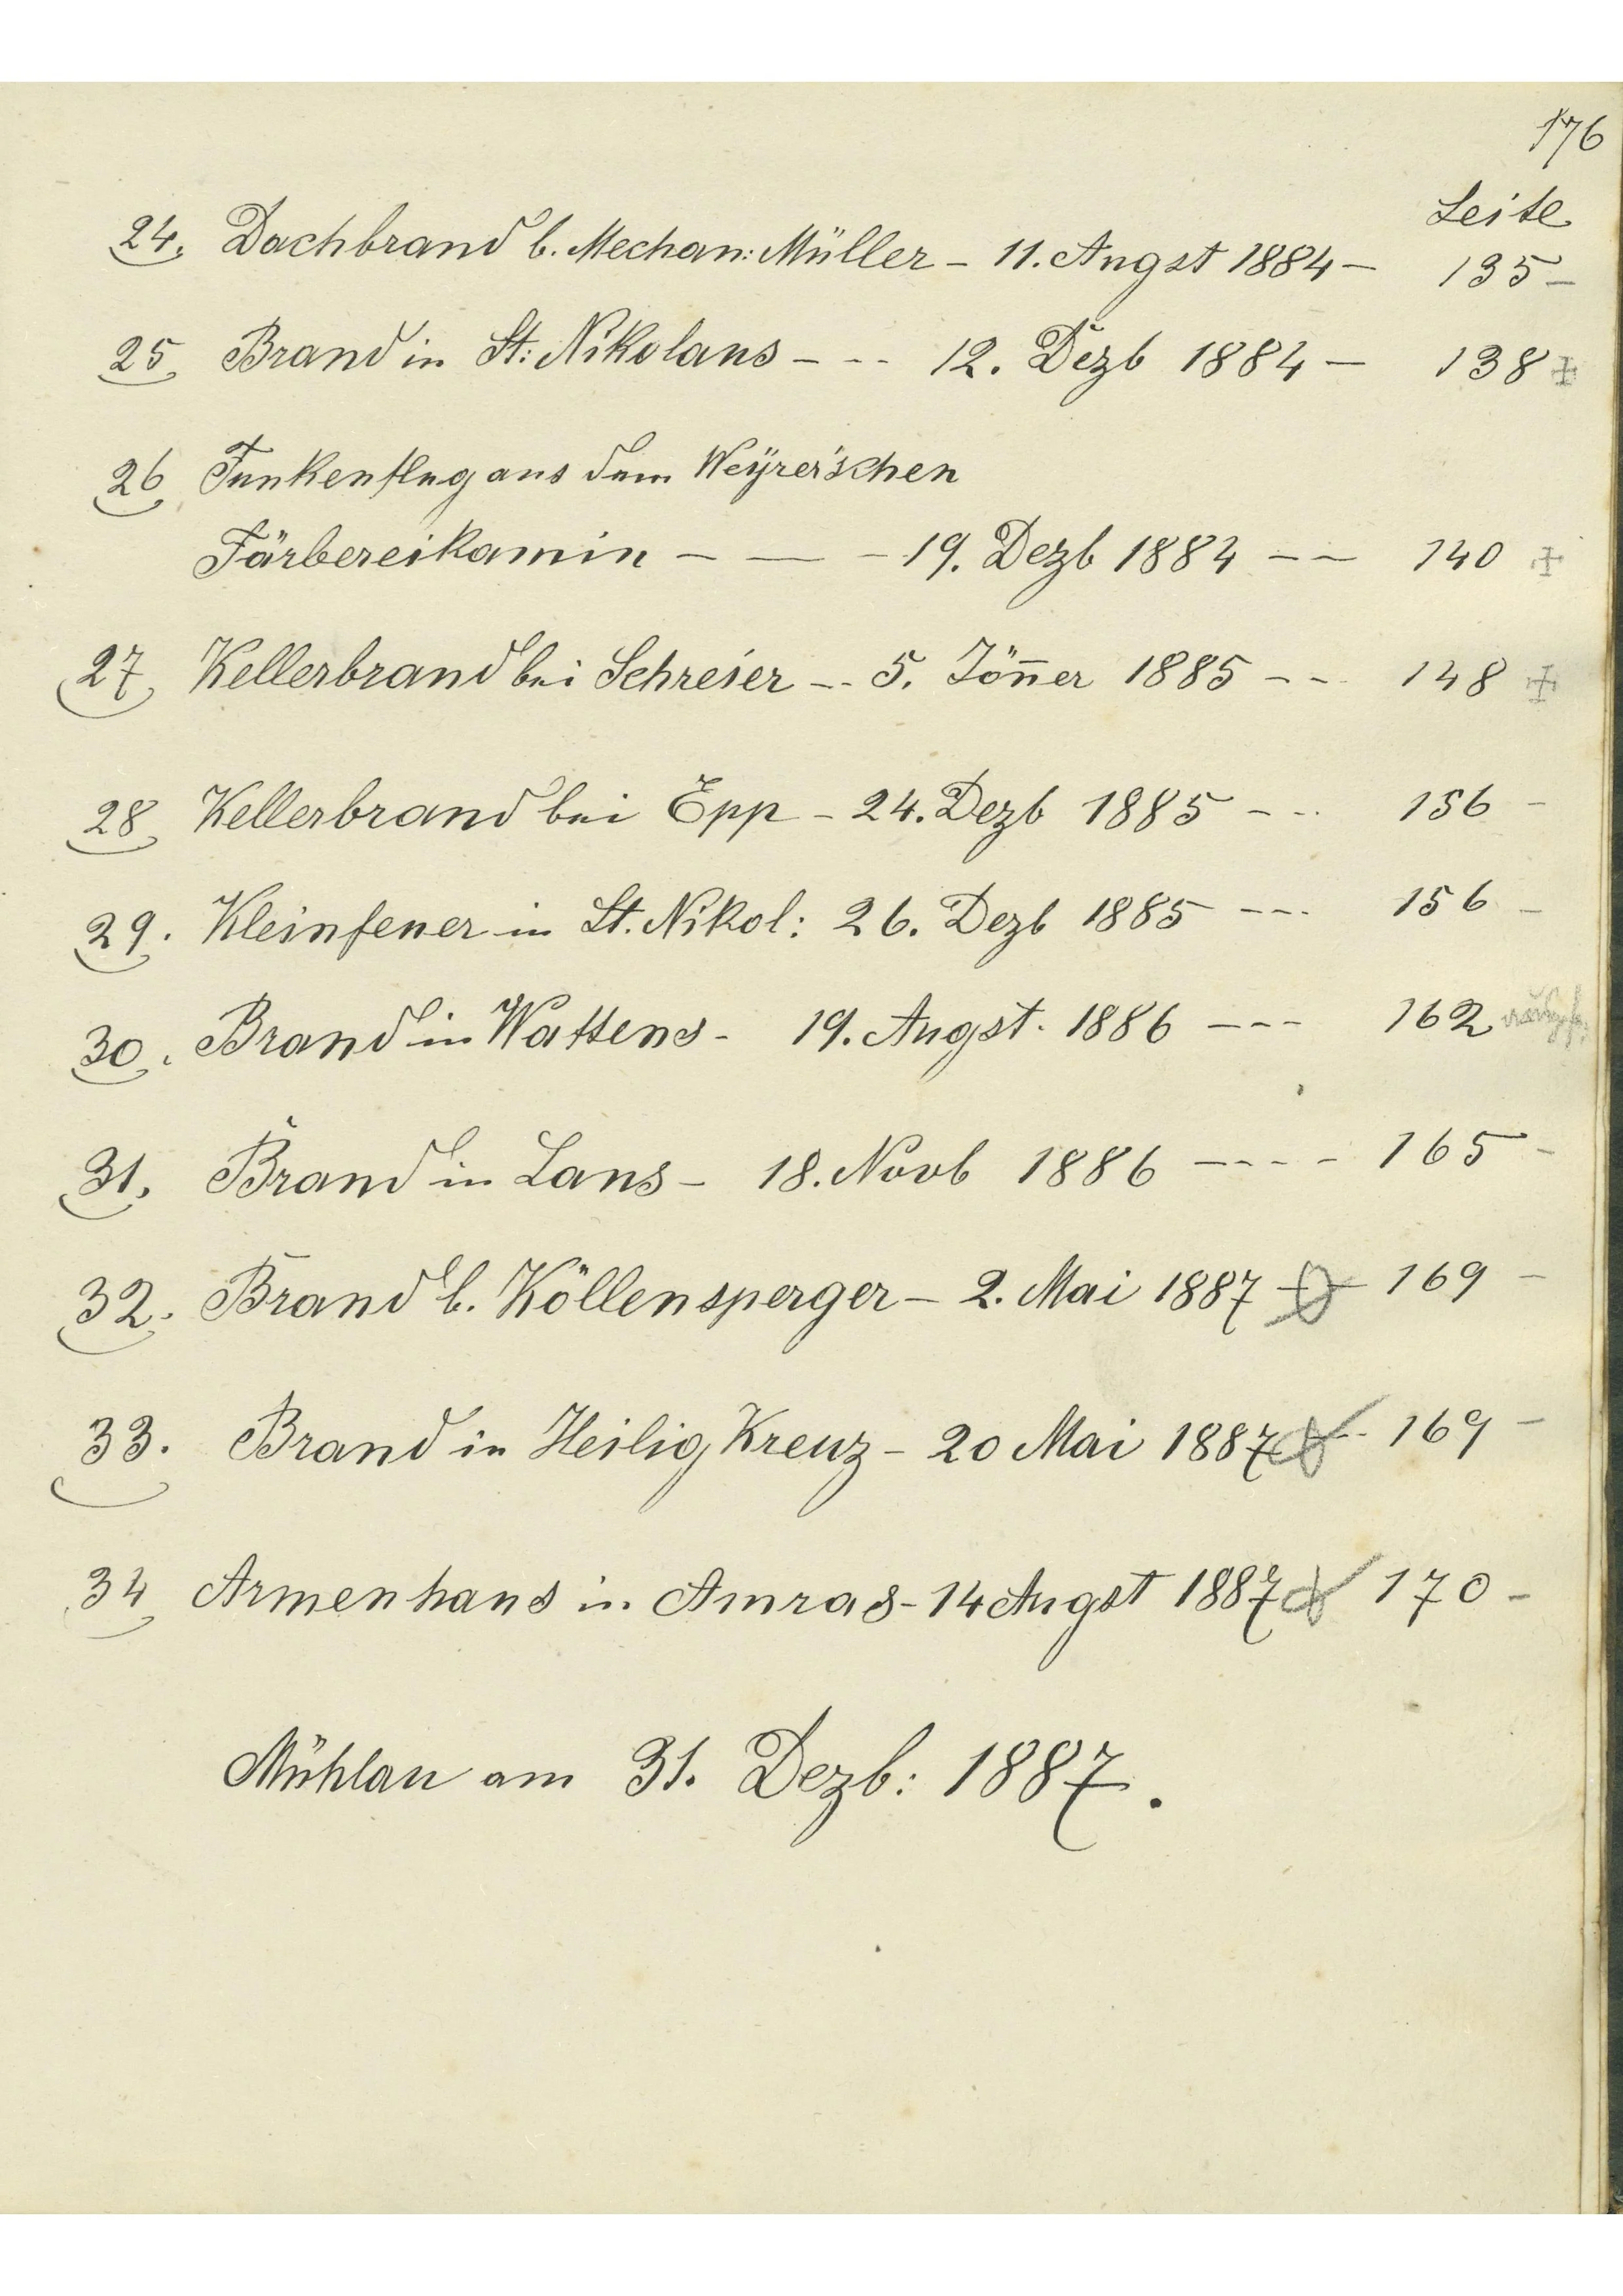 176
Seite
24. Dachbrand b. Mechan: Müller - 11. Augst 1884 - 135 -
25 Brand in St: Nikolaus - - - 12. Dezb 1884 - 138 ‡
26 Funkenflug aus dem Weÿrer'schen
Färbereikamin - — - 19. Dezb 1884 - - 140 ‡
27 Kellerbrand bei Schreier - - 5. Jän̄er 1885 - - - 148 ‡
28 Kellerbrand bei Epp - 24. Dezb 1885 - - - 156 -
29. Kleinfeuer in St. Nikol: 26. Dezb 1885 - - - 156 -
30. Brand in Wattens - 19. Augst. 1886 - - - 162
31. Brand in Lans - 18. Novb 1886 - - - - 165 -
32. Brand b. Köllensperger - 2. Mai 1887 - 169 -
33. Brand in Heilig Kreuz - 20 Mai 1887 - - 169 -
34 Armenhaus in Amras - 14 Augst 1887 170 -
Mühlau am 31. Dezb: 1887.